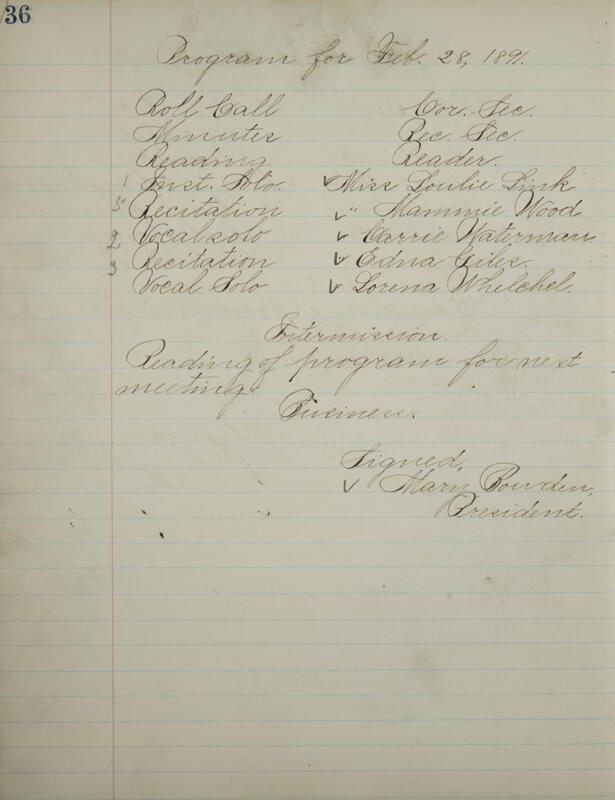 36
Program for Feb. 28, 1891.
Roll Call Cor. Sec.
Minutes Rec. Sec.
Reading Reader.
1 Inst. Solo. ✓ Miss Loulie Link
5 Recitation ✓ " Mammie Wood
2 Vocal solo ✓ Carrie Waterman
3 Recitation ✓ Edna Giles.
Vocal Solo ✓ Lorena Whelchel.
Intermission.
Reading of program for next
meeting.
Business.
Signed,
✓ Mary Bowden,
President.